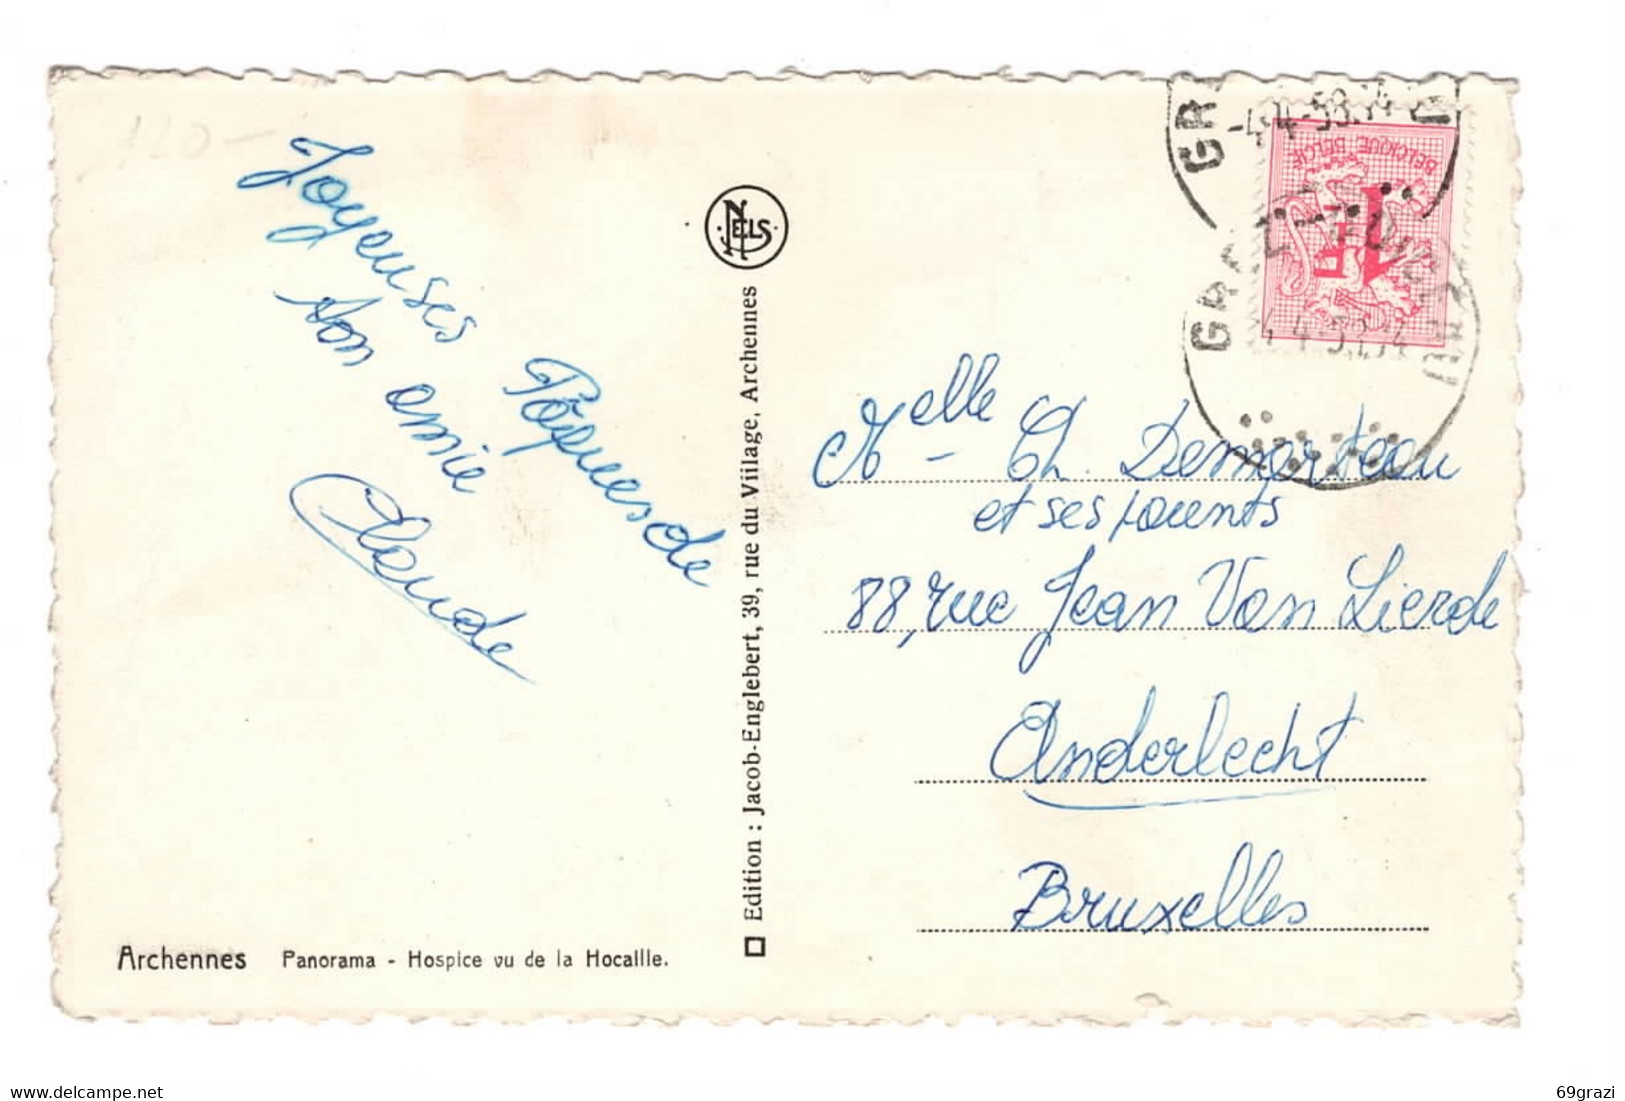 120-
Joyeuses Pâques de
ton amie
Claude
NELS
Edition : Jacob-Englebert, 39, rue du Village, Archennes
BELGIQUE BELGIE
1F
-4-4-58.14
Melle - Ch. Demarteau
et ses parents
88, rue Jean Van Lierde
Anderlecht
Bruxelles
Archennes Panorama - Hospice vu de la Hocaille.
delcampe.net
69grazi